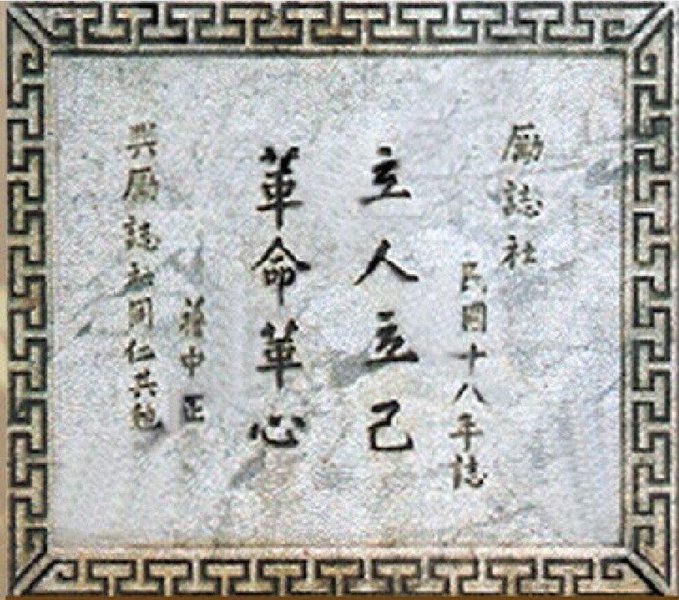 勵誌社
民國十八年誌
立人立己
革命革心
蔣中正
與勵誌社同仁共勉